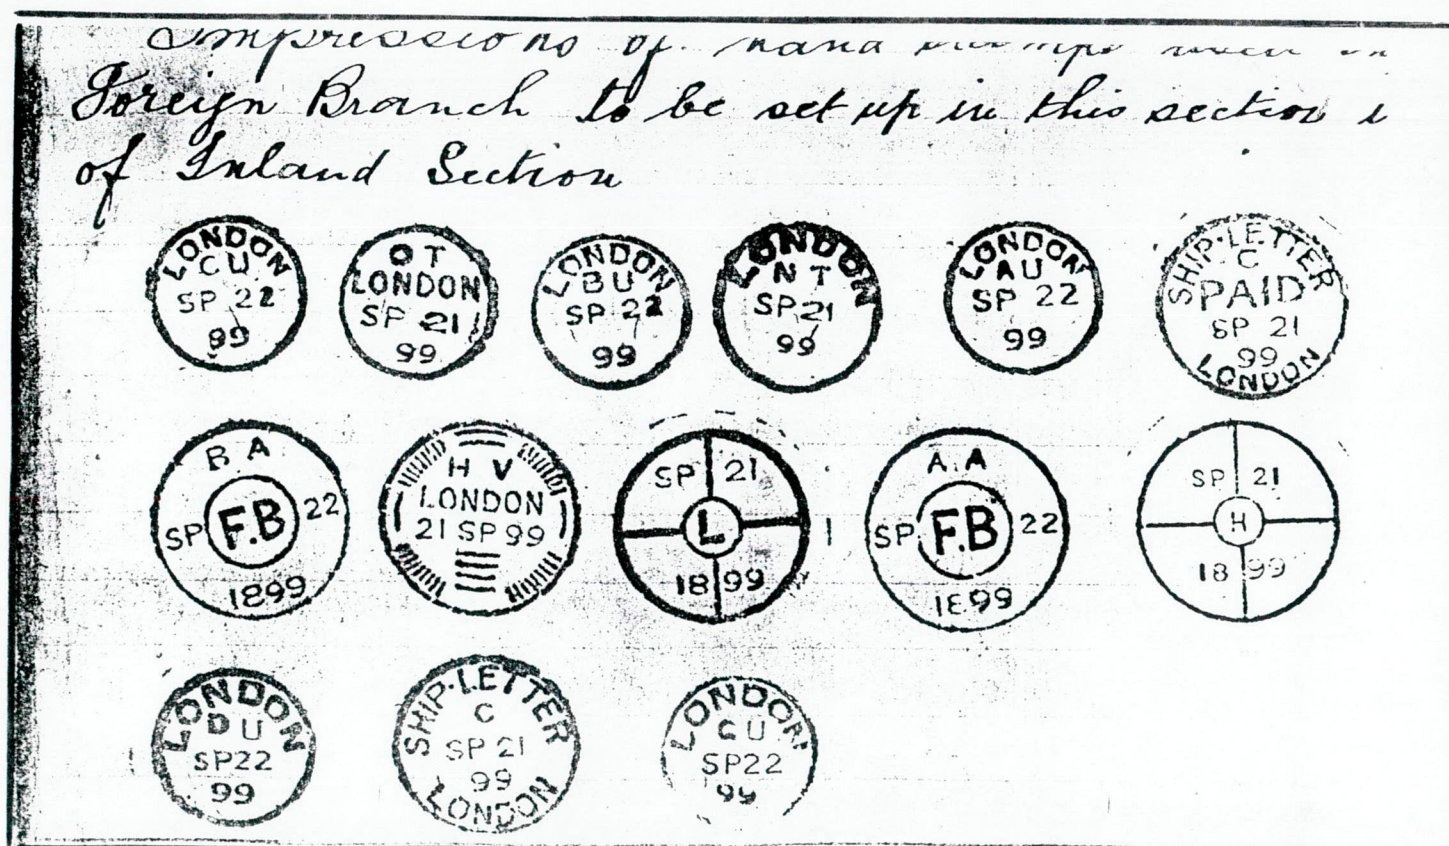 Impressions of hand stamps used in
Foreign Branch to be set up in this section
of Inland Section
LONDON
CU
SP 22
99
OT
LONDON
SP 21
99
LONDON
BU
SP 22
99
LONDON
NT
SP 21
99
LONDON
AU
SP 22
99
SHIP·LETTER
C
PAID
SP 21
99
LONDON
B A
SP F.B 22
1899
H V
LONDON
21 SP 99
SP 21
L
18 99
A A
SP F.B 22
1899
SP 21
H
18 99
LONDON
DU
SP 22
99
SHIP·LETTER
C
SP 21
99
LONDON
LONDON
CU
SP 22
99